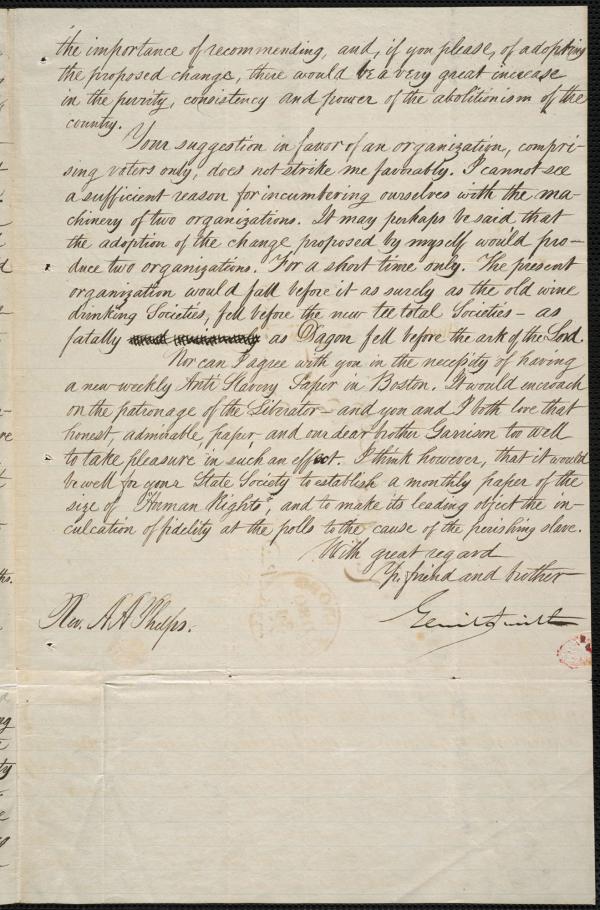 the importance of recommending, and, if you please, of adopting
the proposed change, there would be a very great increase
in the purity, consistency and power of the abolitionism of the
country.
Your suggestion in favor of an organization, compri-
sing voters only, does not strike me favorably. I cannot see
a sufficient reason for incumbering ourselves with the ma-
chinery of two organizations. It may perhaps be said that
the adoption of the change proposed by myself would pro-
duce two organizations. For a short time only. The present
organization would fall before it as surely as the old wine
drinking Societies, fell before the new tee total Societies - as
fatally as Dagon fell before the ark of the Lord.
Nor can I agree with you in the necessity of having
a new weekly Anti Slavery Paper in Boston. It would encroach
on the patronage of the Liberator - and you and I both love that
honest, admirable, paper, and our dear brother Garrison too well
to take pleasure in such an effect. I think however, that it would
be well for your State Society to establish a monthly paper of the
size of "Human Rights", and to make its leading object the in-
culcation of fidelity at the polls to the cause of the perishing slave.
With great regard
Yr. friend and brother
Gerrit Smith
Rev. A A Phelps.